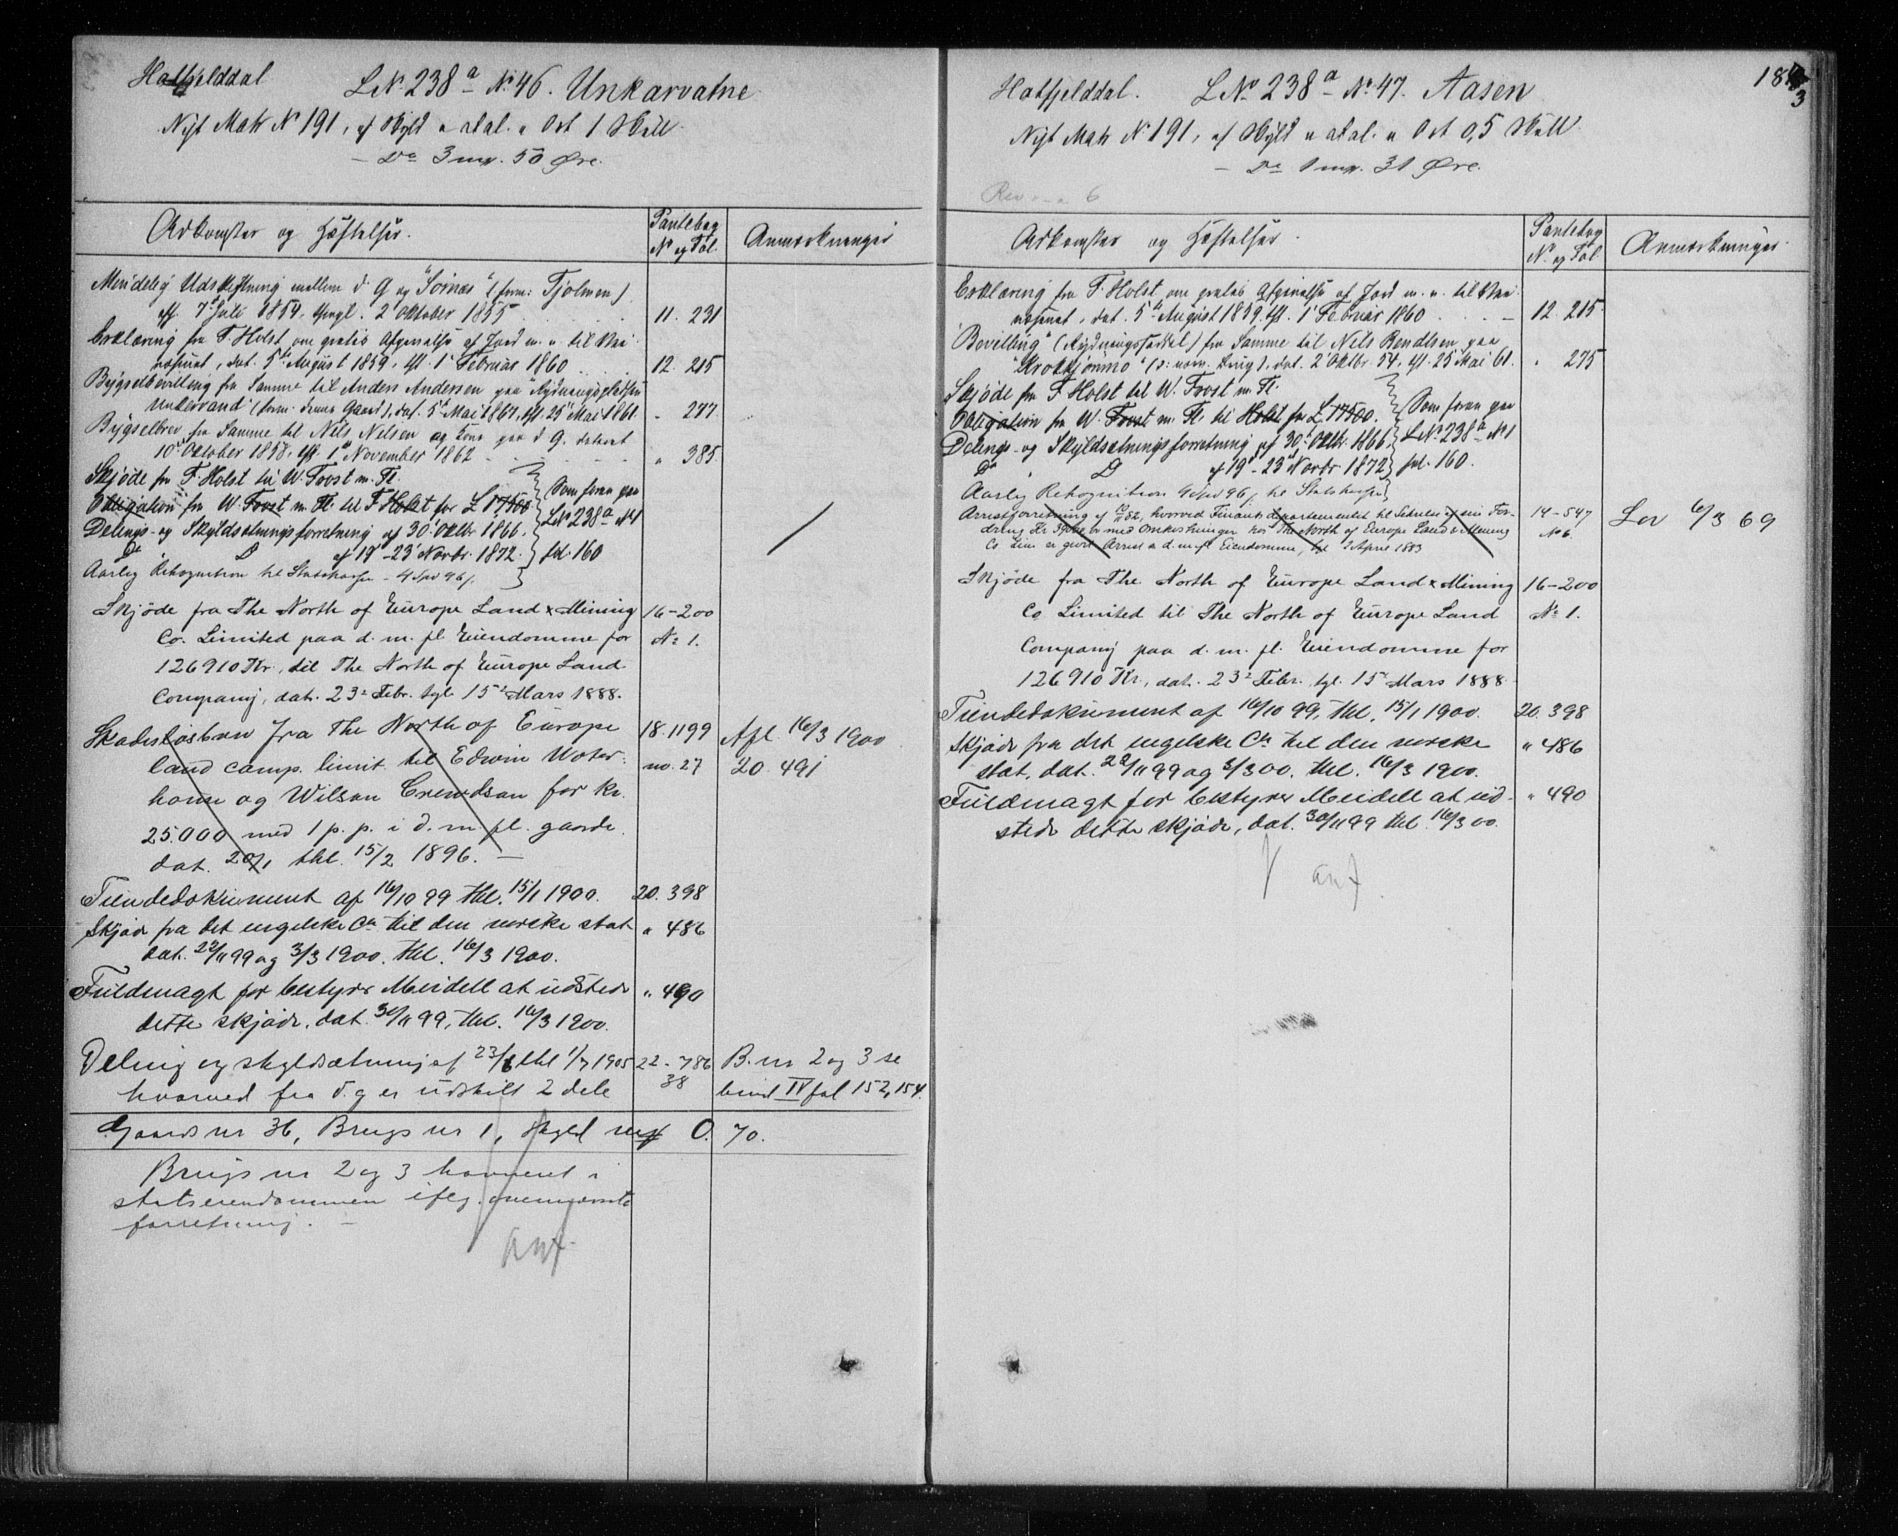 Hatfjelddal LNo 238a No 46. Unkarvatne
Nyt Matr No 191, af Skyld " " Ort 1 Skill.
— Do 3 mrk. 50 Øre.
Adkomster og Hæftelser.
Pantebog
No og Fol.
Anmærkninger
Mindelig Udskiftning mellem d. G og "Sörnæs" (
aff. 7de Juli 1854, thingl. 2 Oktober 1855 11. 231
Erklæring fra F. Holst om gratis Afgivelse af Jord m. v. til
, dat. 5te August 1859, tgl. 1 Februar 1860 12. 215
Bygselbevilling fra Samme til Anders Andersen paa Rydningspladsen
Unkervand ( denne Gaard), dat. 5te Mai 1861, tgl. 25 Mai 1861. " 277
Bygselbrev fra Samme til Nils Nilsen og Kone paa d. G. dateret
10de Oktober 1858, tgl. 1ste November 1862 " 385.
Skjøde fra F. Holst til W. Foost m. Fl.
Obligation fra W. Foost m. Fl. til F. Holst for £ 17500 Som foran paa
Delings- og Skyldsætningsforretning af 30 Oktbr. 1866. LNo 238a No 1
Do D af 19–23 Novbr. 1872. fol. 160
Aarlig Rekognition til Statskassen – 4 Spd 96 ſ.
Skjøde fra The North of Europe Land & Mining 16–200
Co. Limited paa d. m. fl. Eiendomme for No 1.
126910 Kr. til The North of Europe Land
Company, dat. 23de Febr. tgl. 15de Mars 1888.
Skadesløsbrev fra The North of Europe 18.1199 Afl. 16/3 1900
land comp. limit. til Edwin Water- no. 27 20. 491
house og Wilson Crewdson for kr.
25.000 med 1 p. p. i d. m fl. gaarde.
dat. 20/1 thl. 15/2 1896. —
Tiendedokument af 16/10 99 thl. 15/1 1900. 20. 398
Skjøde fra det engelske Co. til den norske stat " 486
dat. 22/11 99 og 3/3 1900. thl. 16/3 1900.
Fuldmagt for bestyrer Meidell at udstede " 490
dette skjøde, dat. 30/11 99, thl. 16/3 1900.
Deling og skyldsætning af 23/6 thl 1/7 1905 22–786 B.nr 2 og 3 se
hvorved fra d. g er udskilt 2 dele 38 bind IV fol 153, 154.
Gaards nr 36, Brugs nr 1, skyld mrk 0. 70.
Brugs nr 2 og 3 i
statseiendommen ifølg. ovennævnte
forretning. —
anf.
183
3
Hatfjelddal. LNo 238a No 47. Aasen
Nyt Matr No 191, af Skyld " " Ort 0,5 Skill
— Do 1 mrk. 31 Øre.
6
Adkomster og Hæftelser.
Pantebog
No og Fol.
Anmærkninger
Erklæring fra F. Holst om gratis Afgivelse af Jord m. v. til
, dat. 5te August 1859, tgl. 1 Februar 1860 12. 215.
Bevilling (Rydningsseddel) fra Samme til Nils Rendtsen paa
"Krokkjønmo" ( ), dat. 2 Oktbr 54, tgl. 25 Mai 61. " 275
Skjøde fra F. Holst til W. Foost m. Fl.
Obligation fra W. Foost m. Fl. til Holst for £ 17500. Som foran paa
Delings- og Skyldsætningsforretning af 30 Oktbr. 1866. LNo 238a No 1
Do D af 19–23 Novbr 1872 fol. 160.
Aarlig Rekognition 4 Spd 96 ſ. til Statskassen
Arrestforretning af , hvorved Finantsdepartementet til Sikkerhed for sin For- 14–547 Lov 6/3 69
dring Kr. med Omkostninger hos The North of Europe Land & Mining No 6.
Co. Lim er gjort Arrest i d. m. fl. Eiendomme, tgl. April 1883
Skjøde fra The North of Europe Land & Mining 16–200
Co Limited til The North of Europe Land No 1.
Company paa d. m. fl. Eiendomme for
126910 Kr., dat. 23de Febr. tgl. 15de Mars 1888.
Tiendedokument af 16/10 99, thl. 15/1 1900. 20. 398
Skjøde fra det engelske Co. til den norske " 486
stat, dat. 22/11 99 og 3/3 00. thl. 16/3 1900.
Fuldmagt for bestyrer Meidell at ud- " 490
stede dette skjøde, dat. 30/11 99 thl. 16/3 00.
anf.